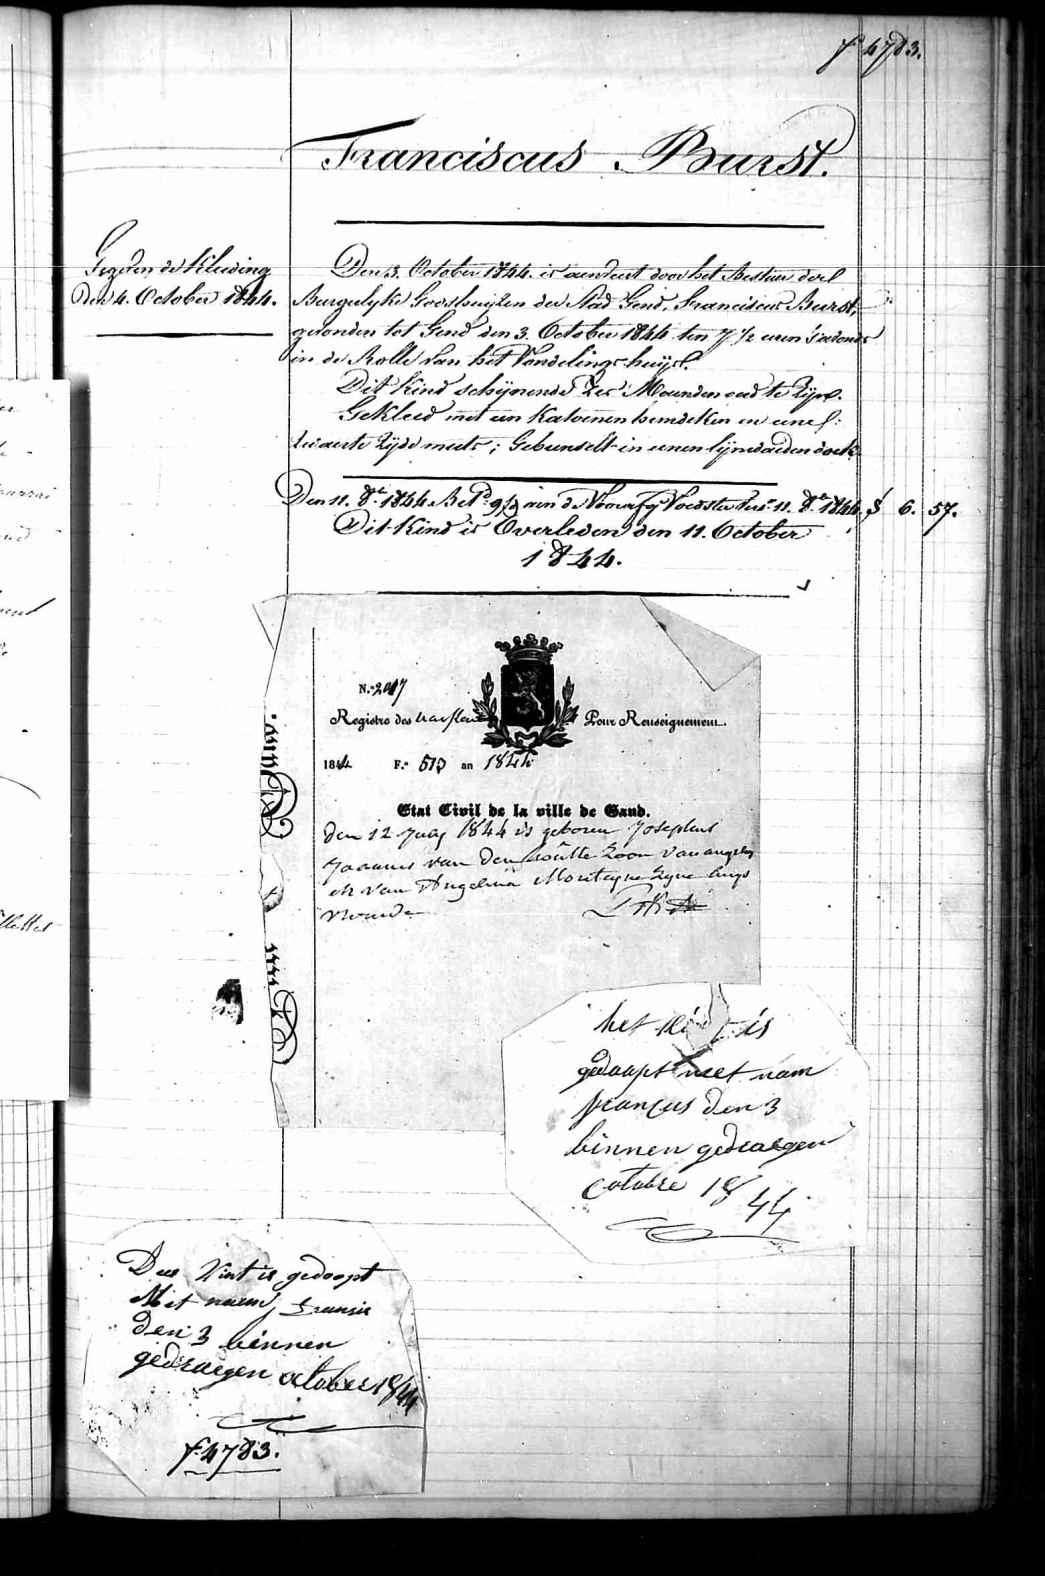 fo 4783.
Franciscus Burst.
Gegeven de Kleeding
Den 4. October 1844.
Den 3. October 1844. is aenveert door het Bestuur der
Burgerlyke Godshuizen der Stad Gend, Franciscus Burst,
gevonden tot Gend den 3. October 1844 ten 7 1/2 uren s'avonds
in de Rolle van het Vondelings-huys.
Dit Kind schijnende zes Maenden oud te zijn.
Gekleed met een Katoenen hemdeken en eene
zwarte zijde muts; Gebunselt in eenen lijnwaeden doek.
Den 11. 8e 1844 Bet. aen de Voedster 11. 8e 1844. 6. 57.
Dit Kind is Overleden den 11. October
1844.
N.o 2017
Registre des Pour Renseignement.
1844 F.o 513 an 1844
Etat Civil de la ville de Gand.
den 12 1844 is geboren Josephus
Joannes van Den zoon van
en van Angelina Monteyne zyne huys
vrouwe
het kint is
gedoopt met nam
francus den 3
binnen gedraegen
octobre 1844
Dees Kint is gedoopt
Met naem fransis
den 3 binnen
gedraegen october 1844
f. 4783.